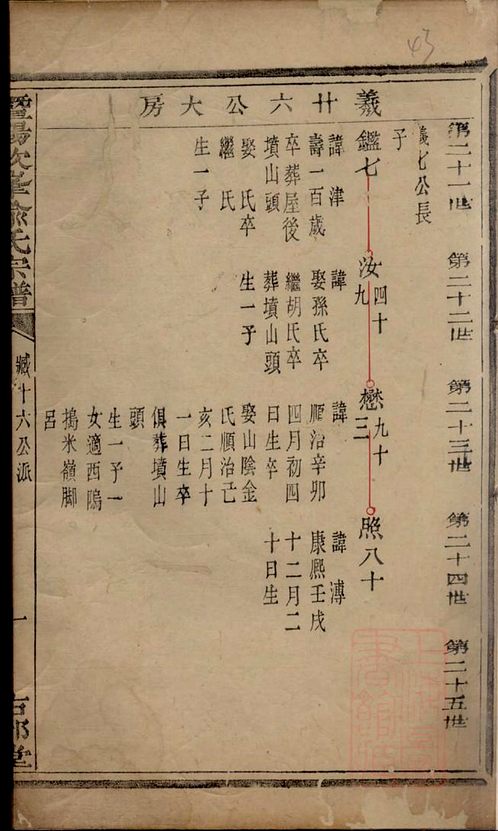 43
羲廿六公大房
第二十一世
第二十二世
第二十三世
第二十四世
第二十五世
義七公長
子
鑑七
諱津
壽一百歲
卒葬屋後
墳山頭
娶 氏卒
繼 氏
生一子
汝四十
九
諱
娶孫氏卒
繼胡氏卒
葬墳山頭
生一子
懋九十
三
諱
順治辛卯
四月初四
日生卒
娶山陰金
氏順治己
亥二月十
一日生卒
俱葬墳山
頭
生一子一
女適西塢
搗米嶺脚
呂
照八十
諱溥
康熙壬戌
十二月二
十日生
暨陽次峯俞氏宗譜
臧十六公派
一